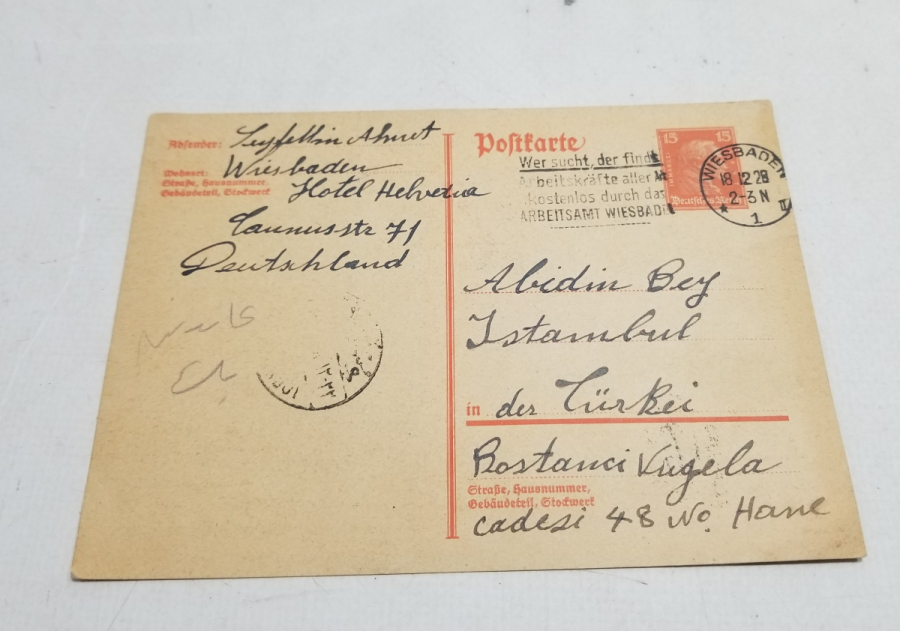 Absender: Seyfettin Ahmet
Wiesbaden
Wohnort:
Straße, Hausnummer,
Gebäudeteil, Stockwerk
Hotel Helvetia
Taunusstr 71
Deutschland
Postkarte
15 15
Deutsches Reich
Wer sucht, der findet
Arbeitskräfte aller
kostenlos durch das
ARBEITSAMT WIESBAD
WIESBADEN
18 12 28
2-3 N
1
Abidin Bey
Istambul
in der Türkei
Bostanci
Straße, Hausnummer,
Gebäudeteil, Stockwerk
cadesi 48 No. Hane